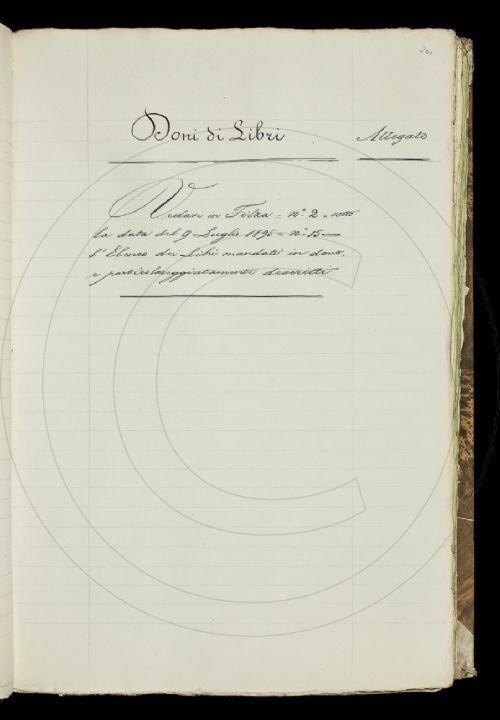 201
Doni di Libri Allegato
Vedasi in Filza = n.º 2 = sotto
la data del 9 Luglio 1895 = n.º 15 =
l'Elenco dei Libri mandati in dono,
e particolareggiatamente descritti